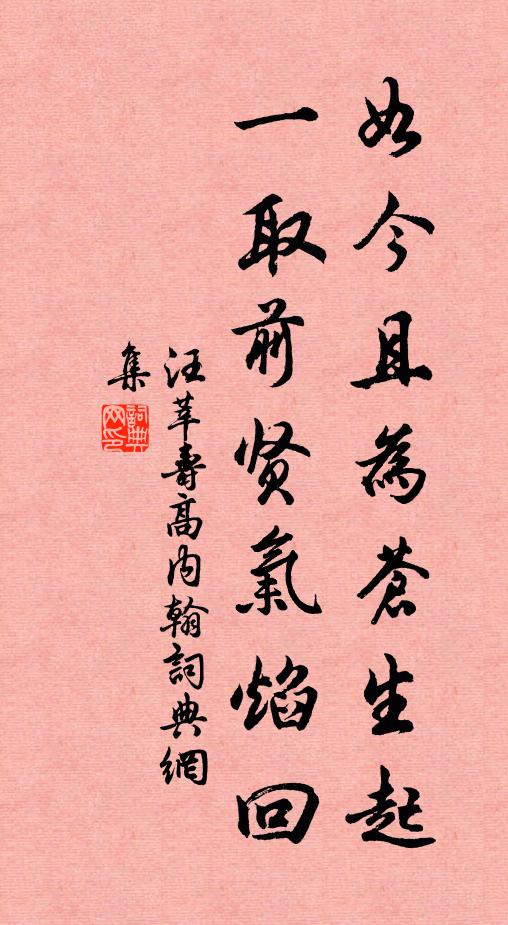 如今且為蒼生起
一取前贤氣焰回
汪莘壽高内翰詞典網
集
詞典网印